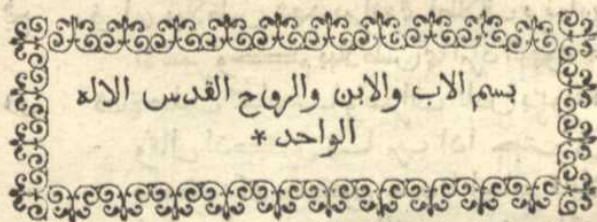 بسم الاب والابن والروح القدس الاله
الواحد *